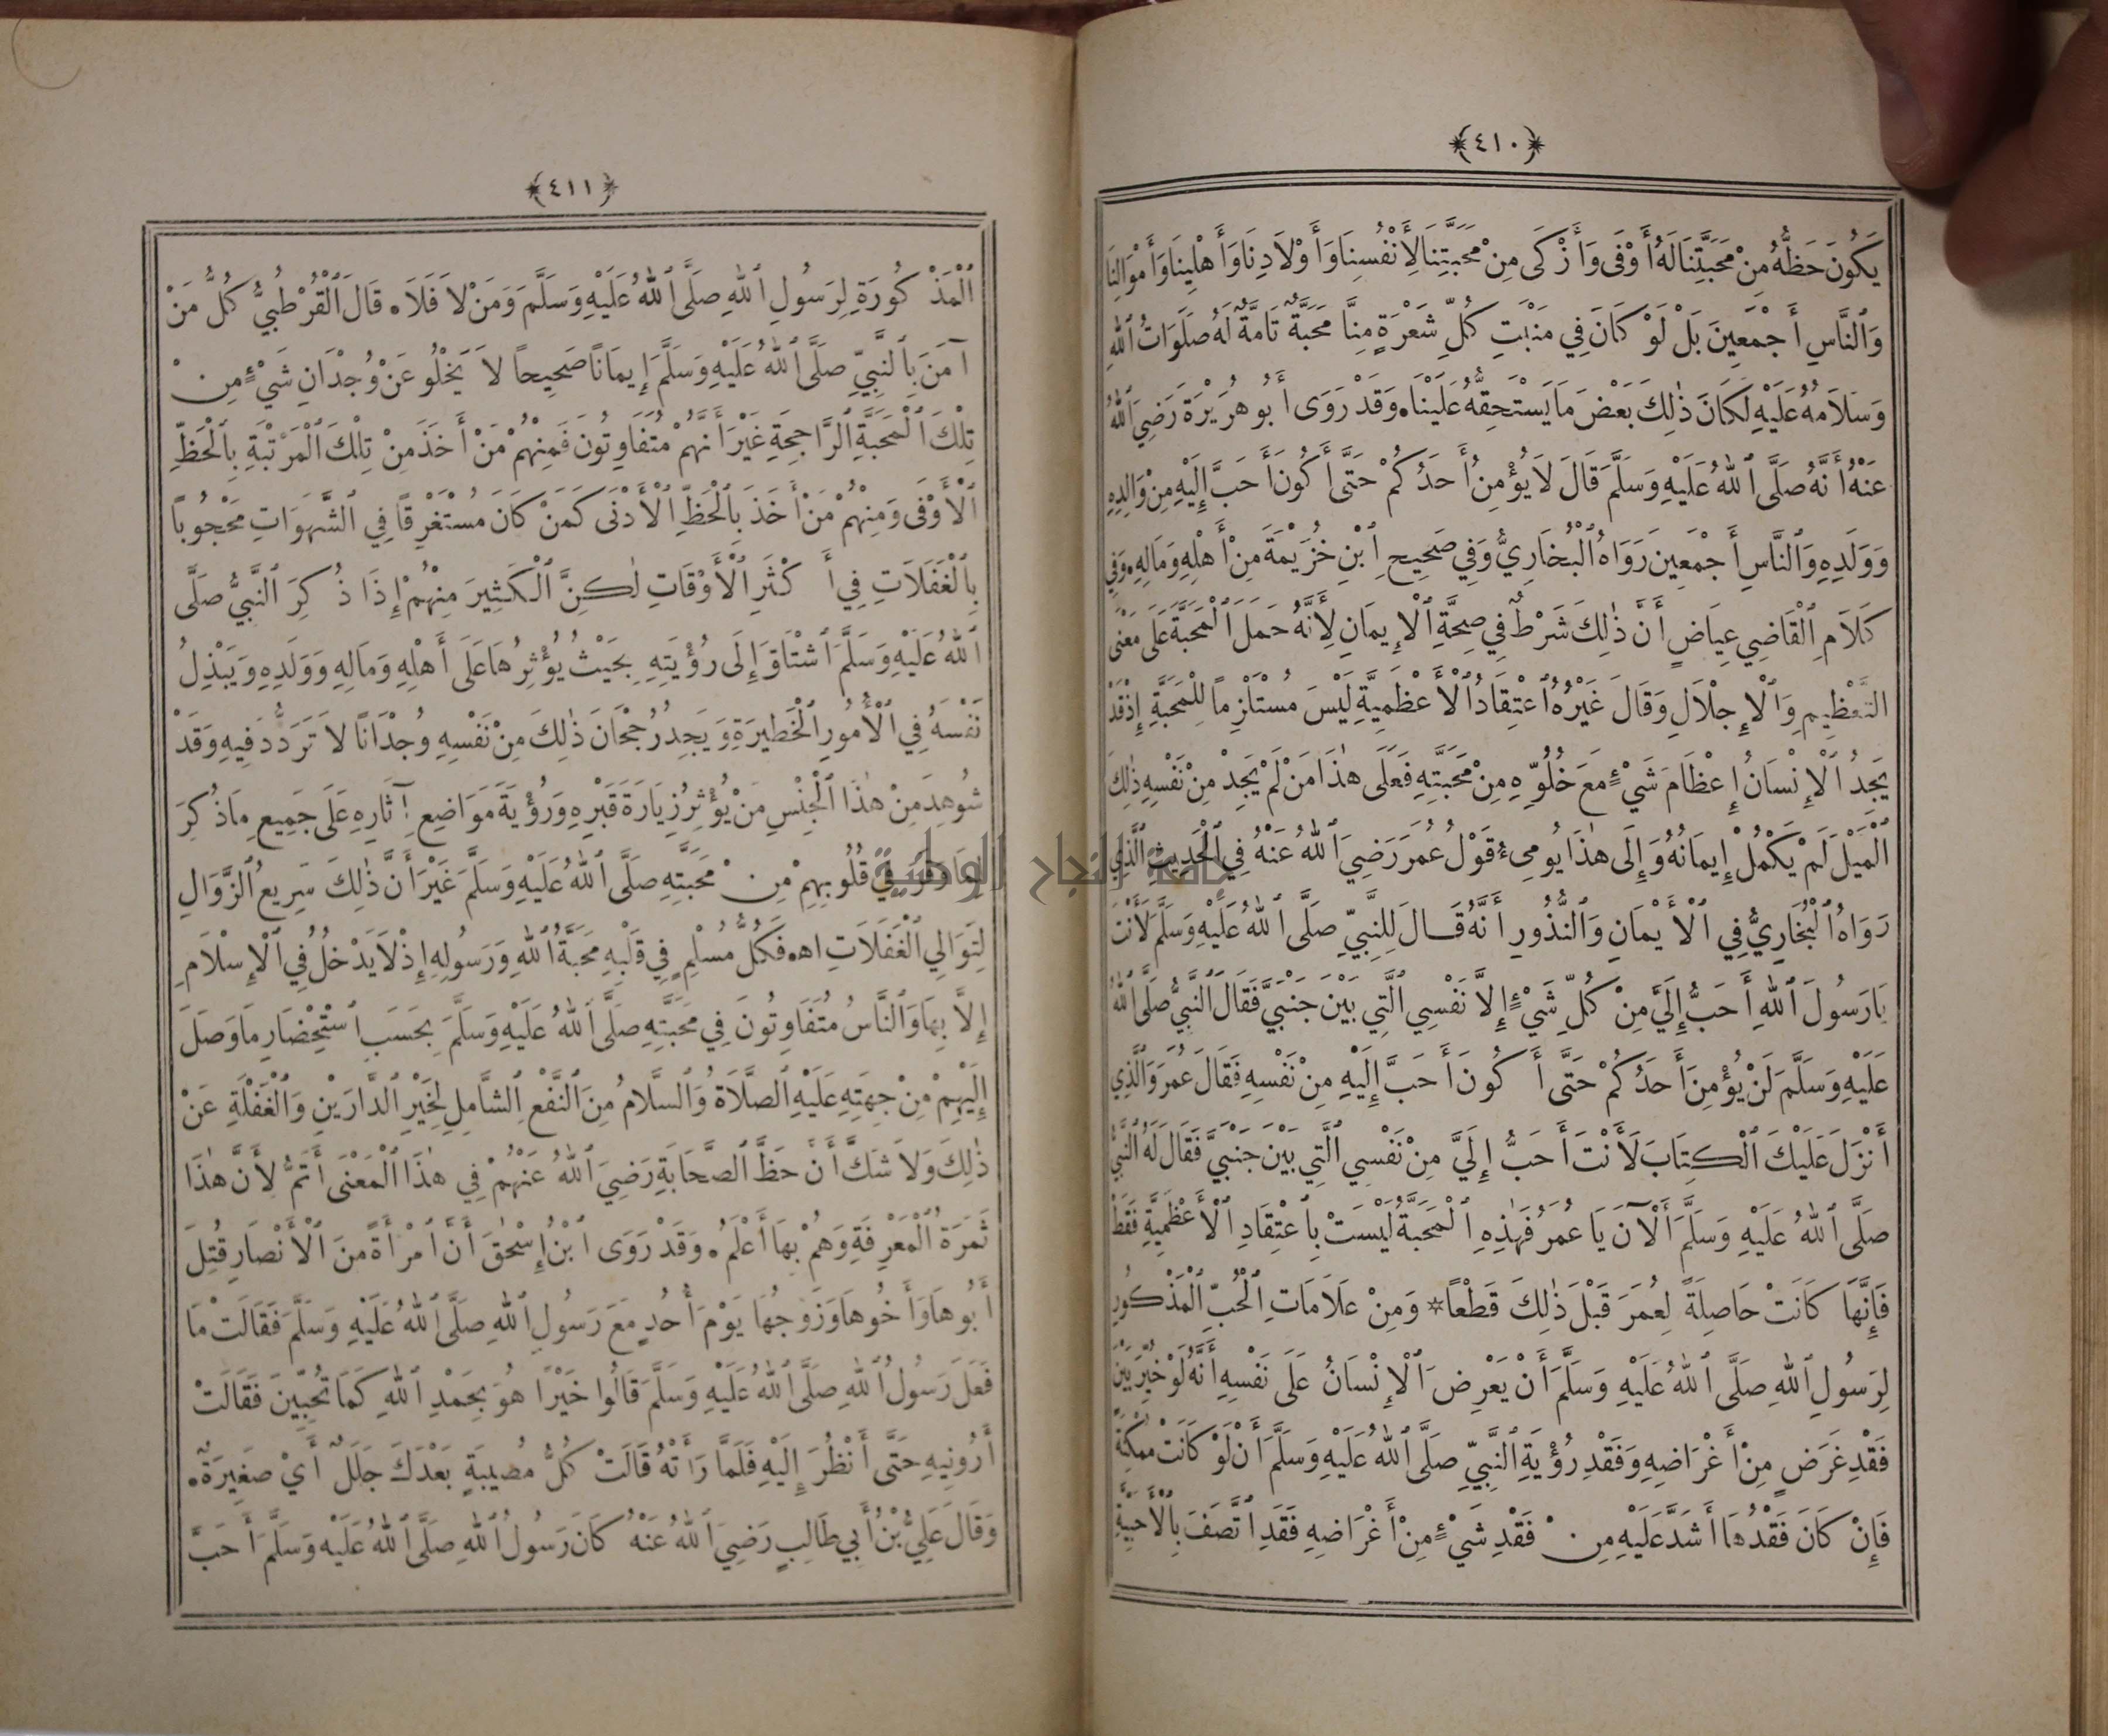 ﴿٤١٠﴾
يَكُونَ حَظُّهُ مِنْ مَحَبَّتِنَا لَهُ أَوْفَى وَأَزْكَى مِنْ مَحَبَّتِنَا لِأَنْفُسِنَا وَأَوْلَادِنَا وَأَهْلِينَا وَأَمْوَالِنَا
وَٱلنَّاسِ أَجْمَعِينَ بَلْ لَوْ كَانَ فِي مَنْبَتِ كُلِّ شَعْرَةٍ مِنَّا مَحَبَّةٌ تَامَّةٌ لَهُ صَلَوَاتُ ٱللهِ
وَسَلَامُهُ عَلَيْهِ لَكَانَ ذٰلِكَ بَعْضَ مَا يَسْتَحِقُّهُ عَلَيْنَا. وَقَدْ رَوَى أَبُو هُرَيْرَةَ رَضِيَ ٱللهُ
عَنْهُ أَنَّهُ صَلَّى ٱللهُ عَلَيْهِ وَسَلَّمَ قَالَ لَا يُؤْمِنُ أَحَدُكُمْ حَتَّى أَكُونَ أَحَبَّ إِلَيْهِ مِنْ وَالِدِهِ
وَوَلَدِهِ وَٱلنَّاسِ أَجْمَعِينَ رَوَاهُ ٱلْبُخَارِيُّ وَفِي صَحِيحِ ٱبْنِ خُزَيْمَةَ مِنْ أَهْلِهِ وَمَالِهِ. وَفِي
كَلَامِ ٱلْقَاضِي عِيَاضٍ أَنَّ ذٰلِكَ شَرْطٌ فِي صِحَّةِ ٱلْإِيمَانِ لِأَنَّهُ حَمَلَ ٱلْمَحَبَّةَ عَلَى مَعْنَى
ٱلتَّعْظِيمِ وَٱلْإِجْلَالِ وَقَالَ غَيْرُهُ ٱعْتِقَادُ ٱلْأَعْظَمِيَّةِ لَيْسَ مُسْتَلْزِمًا لِلْمَحَبَّةِ إِذْ قَدْ
يَجِدُ ٱلْإِنْسَانُ إِعْظَامَ شَيْءٍ مَعَ خُلُوِّهِ مِنْ مَحَبَّتِهِ فَعَلَى هٰذَا مَنْ لَمْ يَجِدْ مِنْ نَفْسِهِ ذٰلِكَ
ٱلْمَيْلَ لَمْ يَكْمُلْ إِيمَانُهُ وَإِلَى هٰذَا يُومِئُ قَوْلُ عُمَرَ رَضِيَ ٱللهُ عَنْهُ فِي ٱلْحَدِيثِ ٱلَّذِي
رَوَاهُ ٱلْبُخَارِيُّ فِي ٱلْأَيْمَانِ وَٱلنُّذُورِ أَنَّهُ قَالَ لِلنَّبِيِّ صَلَّى ٱللهُ عَلَيْهِ وَسَلَّمَ لَأَنْتَ
يَا رَسُولَ ٱللهِ أَحَبُّ إِلَيَّ مِنْ كُلِّ شَيْءٍ إِلَّا نَفْسِي ٱلَّتِي بَيْنَ جَنْبَيَّ فَقَالَ ٱلنَّبِيُّ صَلَّى ٱللهُ
عَلَيْهِ وَسَلَّمَ لَنْ يُؤْمِنَ أَحَدُكُمْ حَتَّى أَكُونَ أَحَبَّ إِلَيْهِ مِنْ نَفْسِهِ فَقَالَ عُمَرُ وَٱلَّذِي
أَنْزَلَ عَلَيْكَ ٱلْكِتَابَ لَأَنْتَ أَحَبُّ إِلَيَّ مِنْ نَفْسِي ٱلَّتِي بَيْنَ جَنْبَيَّ فَقَالَ لَهُ ٱلنَّبِيُّ
صَلَّى ٱللهُ عَلَيْهِ وَسَلَّمَ أَلْآنَ يَا عُمَرُ فَهٰذِهِ ٱلْمَحَبَّةُ لَيْسَتْ بِٱعْتِقَادِ ٱلْأَعْظَمِيَّةِ فَقَطْ
فَإِنَّهَا كَانَتْ حَاصِلَةً لِعُمَرَ قَبْلَ ذٰلِكَ قَطْعًا * وَمِنْ عَلَامَاتِ ٱلْحُبِّ ٱلْمَذْكُورِ
لِرَسُولِ ٱللهِ صَلَّى ٱللهُ عَلَيْهِ وَسَلَّمَ أَنْ يَعْرِضَ ٱلْإِنْسَانُ عَلَى نَفْسِهِ أَنَّهُ لَوْ خُيِّرَ بَيْنَ
فَقْدِ غَرَضٍ مِنْ أَغْرَاضِهِ وَفَقْدِ رُؤْيَةِ ٱلنَّبِيِّ صَلَّى ٱللهُ عَلَيْهِ وَسَلَّمَ أَنْ لَوْ كَانَتْ مُمْكِنَةً
فَإِنْ كَانَ فَقْدُهَا أَشَدَّ عَلَيْهِ مِنْ فَقْدِ شَيْءٍ مِنْ أَغْرَاضِهِ فَقَدِ ٱتَّصَفَ بِٱلْأَحَبِّيَّةِ
﴿٤١١﴾
ٱلْمَذْكُورَةِ لِرَسُولِ ٱللهِ صَلَّى ٱللهُ عَلَيْهِ وَسَلَّمَ وَمَنْ لَا فَلَا. قَالَ ٱلْقُرْطُبِيُّ كُلُّ مَنْ
آمَنَ بِٱلنَّبِيِّ صَلَّى ٱللهُ عَلَيْهِ وَسَلَّمَ إِيمَانًا صَحِيحًا لَا يَخْلُو عَنْ وُجْدَانِ شَيْءٍ مِنْ
تِلْكَ ٱلْمَحَبَّةِ ٱلرَّاجِحَةِ غَيْرَ أَنَّهُمْ مُتَفَاوِتُونَ فَمِنْهُمْ مَنْ أَخَذَ مِنْ تِلْكَ ٱلْمَرْتَبَةِ بِٱلْحَظِّ
ٱلْأَوْفَى وَمِنْهُمْ مَنْ أَخَذَ بِٱلْحَظِّ ٱلْأَدْنَى كَمَنْ كَانَ مُسْتَغْرِقًا فِي ٱلشَّهَوَاتِ مَحْجُوبًا
بِٱلْغَفَلَاتِ فِي أَكْثَرِ ٱلْأَوْقَاتِ لٰكِنَّ ٱلْكَثِيرَ مِنْهُمْ إِذَا ذُكِرَ ٱلنَّبِيُّ صَلَّى
ٱللهُ عَلَيْهِ وَسَلَّمَ ٱشْتَاقَ إِلَى رُؤْيَتِهِ بِحَيْثُ يُؤْثِرُهَا عَلَى أَهْلِهِ وَمَالِهِ وَوَلَدِهِ وَيَبْذِلُ
نَفْسَهُ فِي ٱلْأُمُورِ ٱلْخَطِيرَةِ وَيَجِدُ رُجْحَانَ ذٰلِكَ مِنْ نَفْسِهِ وُجْدَانًا لَا تَرَدُّدَ فِيهِ وَقَدْ
شُوهِدَ مِنْ هٰذَا ٱلْجِنْسِ مَنْ يُؤْثِرُ زِيَارَةَ قَبْرِهِ وَرُؤْيَةَ مَوَاضِعِ آثَارِهِ عَلَى جَمِيعِ مَا ذُكِرَ
لِمَا وَقَرَ فِي قُلُوبِهِمْ مِنْ مَحَبَّتِهِ صَلَّى ٱللهُ عَلَيْهِ وَسَلَّمَ غَيْرَ أَنَّ ذٰلِكَ سَرِيعُ ٱلزَّوَالِ
لِتَوَالِي ٱلْغَفَلَاتِ اهـ. فَكُلُّ مُسْلِمٍ فِي قَلْبِهِ مَحَبَّةُ ٱللهِ وَرَسُولِهِ إِذْ لَا يَدْخُلُ فِي ٱلْإِسْلَامِ
إِلَّا بِهَا وَٱلنَّاسُ مُتَفَاوِتُونَ فِي مَحَبَّتِهِ صَلَّى ٱللهُ عَلَيْهِ وَسَلَّمَ بِحَسَبِ ٱسْتِحْضَارِ مَا وَصَلَ
إِلَيْهِمْ مِنْ جِهَتِهِ عَلَيْهِ ٱلصَّلَاةُ وَٱلسَّلَامُ مِنَ ٱلنَّفْعِ ٱلشَّامِلِ لِخَيْرِ ٱلدَّارَيْنِ وَٱلْغَفْلَةِ عَنْ
ذٰلِكَ وَلَا شَكَّ أَنَّ حَظَّ ٱلصَّحَابَةِ رَضِيَ ٱللهُ عَنْهُمْ فِي هٰذَا ٱلْمَعْنَى أَتَمُّ لِأَنَّ هٰذَا
ثَمَرَةُ ٱلْمَعْرِفَةِ وَهُمْ بِهَا أَعْلَمُ. وَقَدْ رَوَى ٱبْنُ إِسْحٰقَ أَنَّ ٱمْرَأَةً مِنَ ٱلْأَنْصَارِ قُتِلَ
أَبُوهَا وَأَخُوهَا وَزَوْجُهَا يَوْمَ أُحُدٍ مَعَ رَسُولِ ٱللهِ صَلَّى ٱللهُ عَلَيْهِ وَسَلَّمَ فَقَالَتْ مَا
فَعَلَ رَسُولُ ٱللهِ صَلَّى ٱللهُ عَلَيْهِ وَسَلَّمَ قَالُوا خَيْرًا هُوَ بِحَمْدِ ٱللهِ كَمَا تُحِبِّينَ فَقَالَتْ
أَرُونِيهِ حَتَّى أَنْظُرَ إِلَيْهِ فَلَمَّا رَأَتْهُ قَالَتْ كُلُّ مُصِيبَةٍ بَعْدَكَ جَلَلٌ أَيْ صَغِيرَةٌ.
وَقَالَ عَلِيُّ بْنُ أَبِي طَالِبٍ رَضِيَ ٱللهُ عَنْهُ كَانَ رَسُولُ ٱللهِ صَلَّى ٱللهُ عَلَيْهِ وَسَلَّمَ أَحَبَّ
جامعة النجاح الوطنية